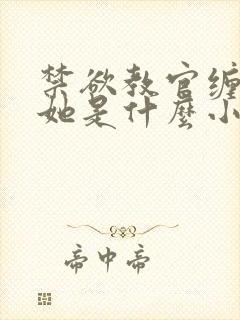 禁欲教官缠
她是什麼小
帝中帝